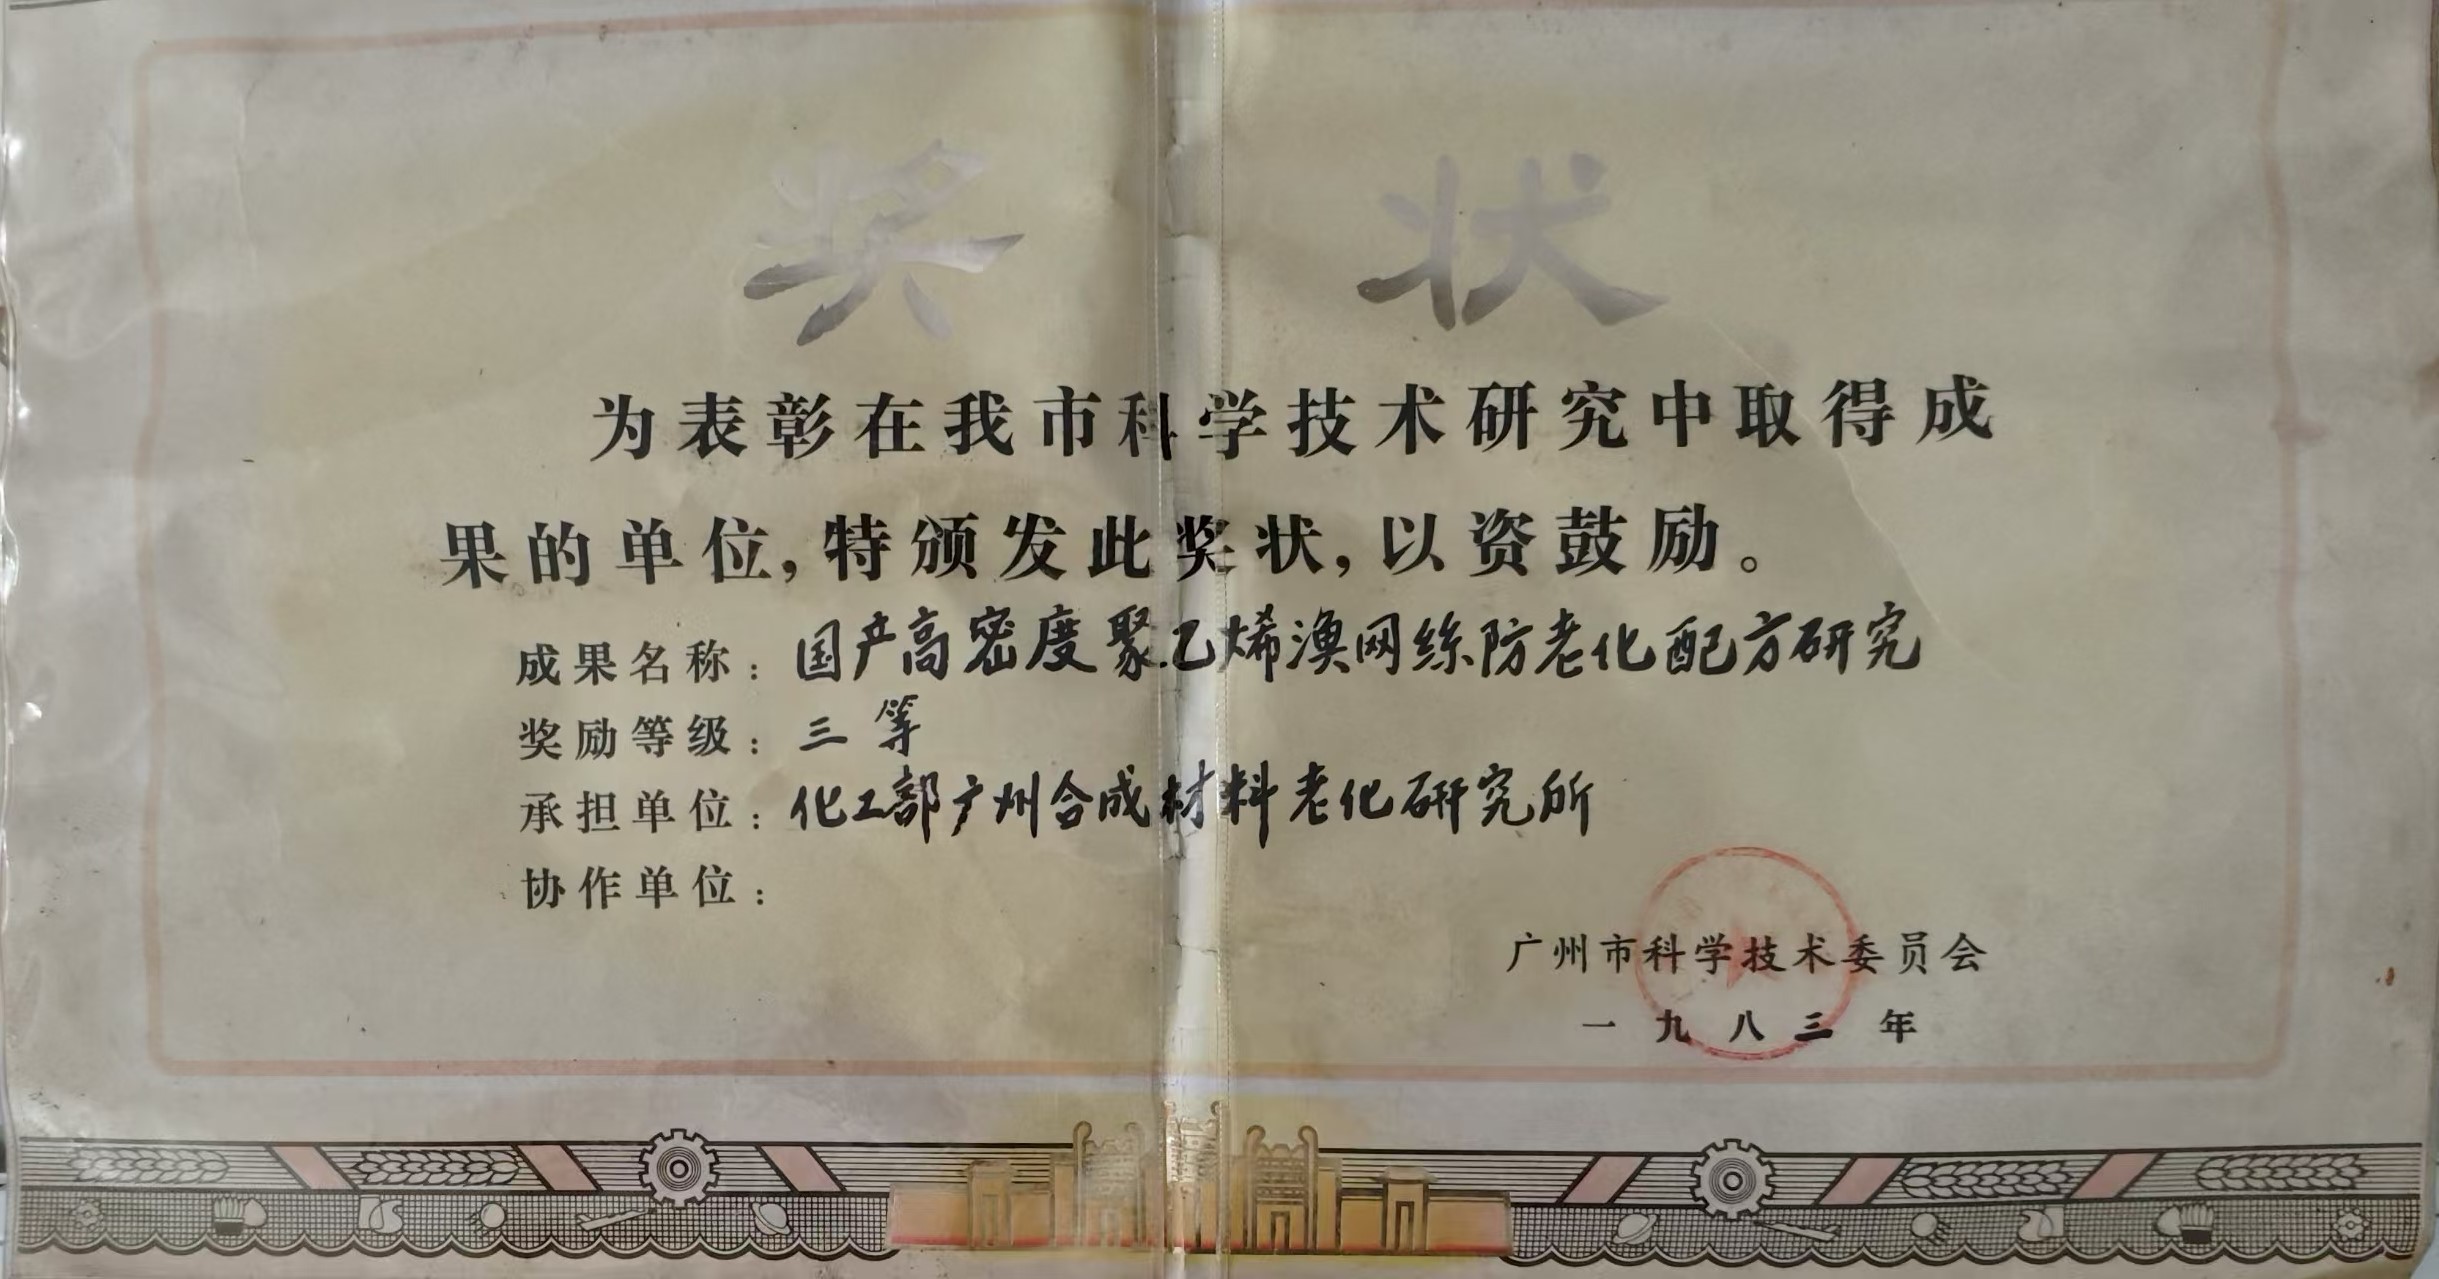 奖状
为表彰在我市科学技术研究中取得成
果的单位,特颁发此奖状,以资鼓励。
成果名称：国产高密度聚乙烯渔网丝防老化配方研究
奖励等级：三等
承担单位：化工部广州合成材料老化研究所
协作单位：
广州市科学技术委员会
一九八三年